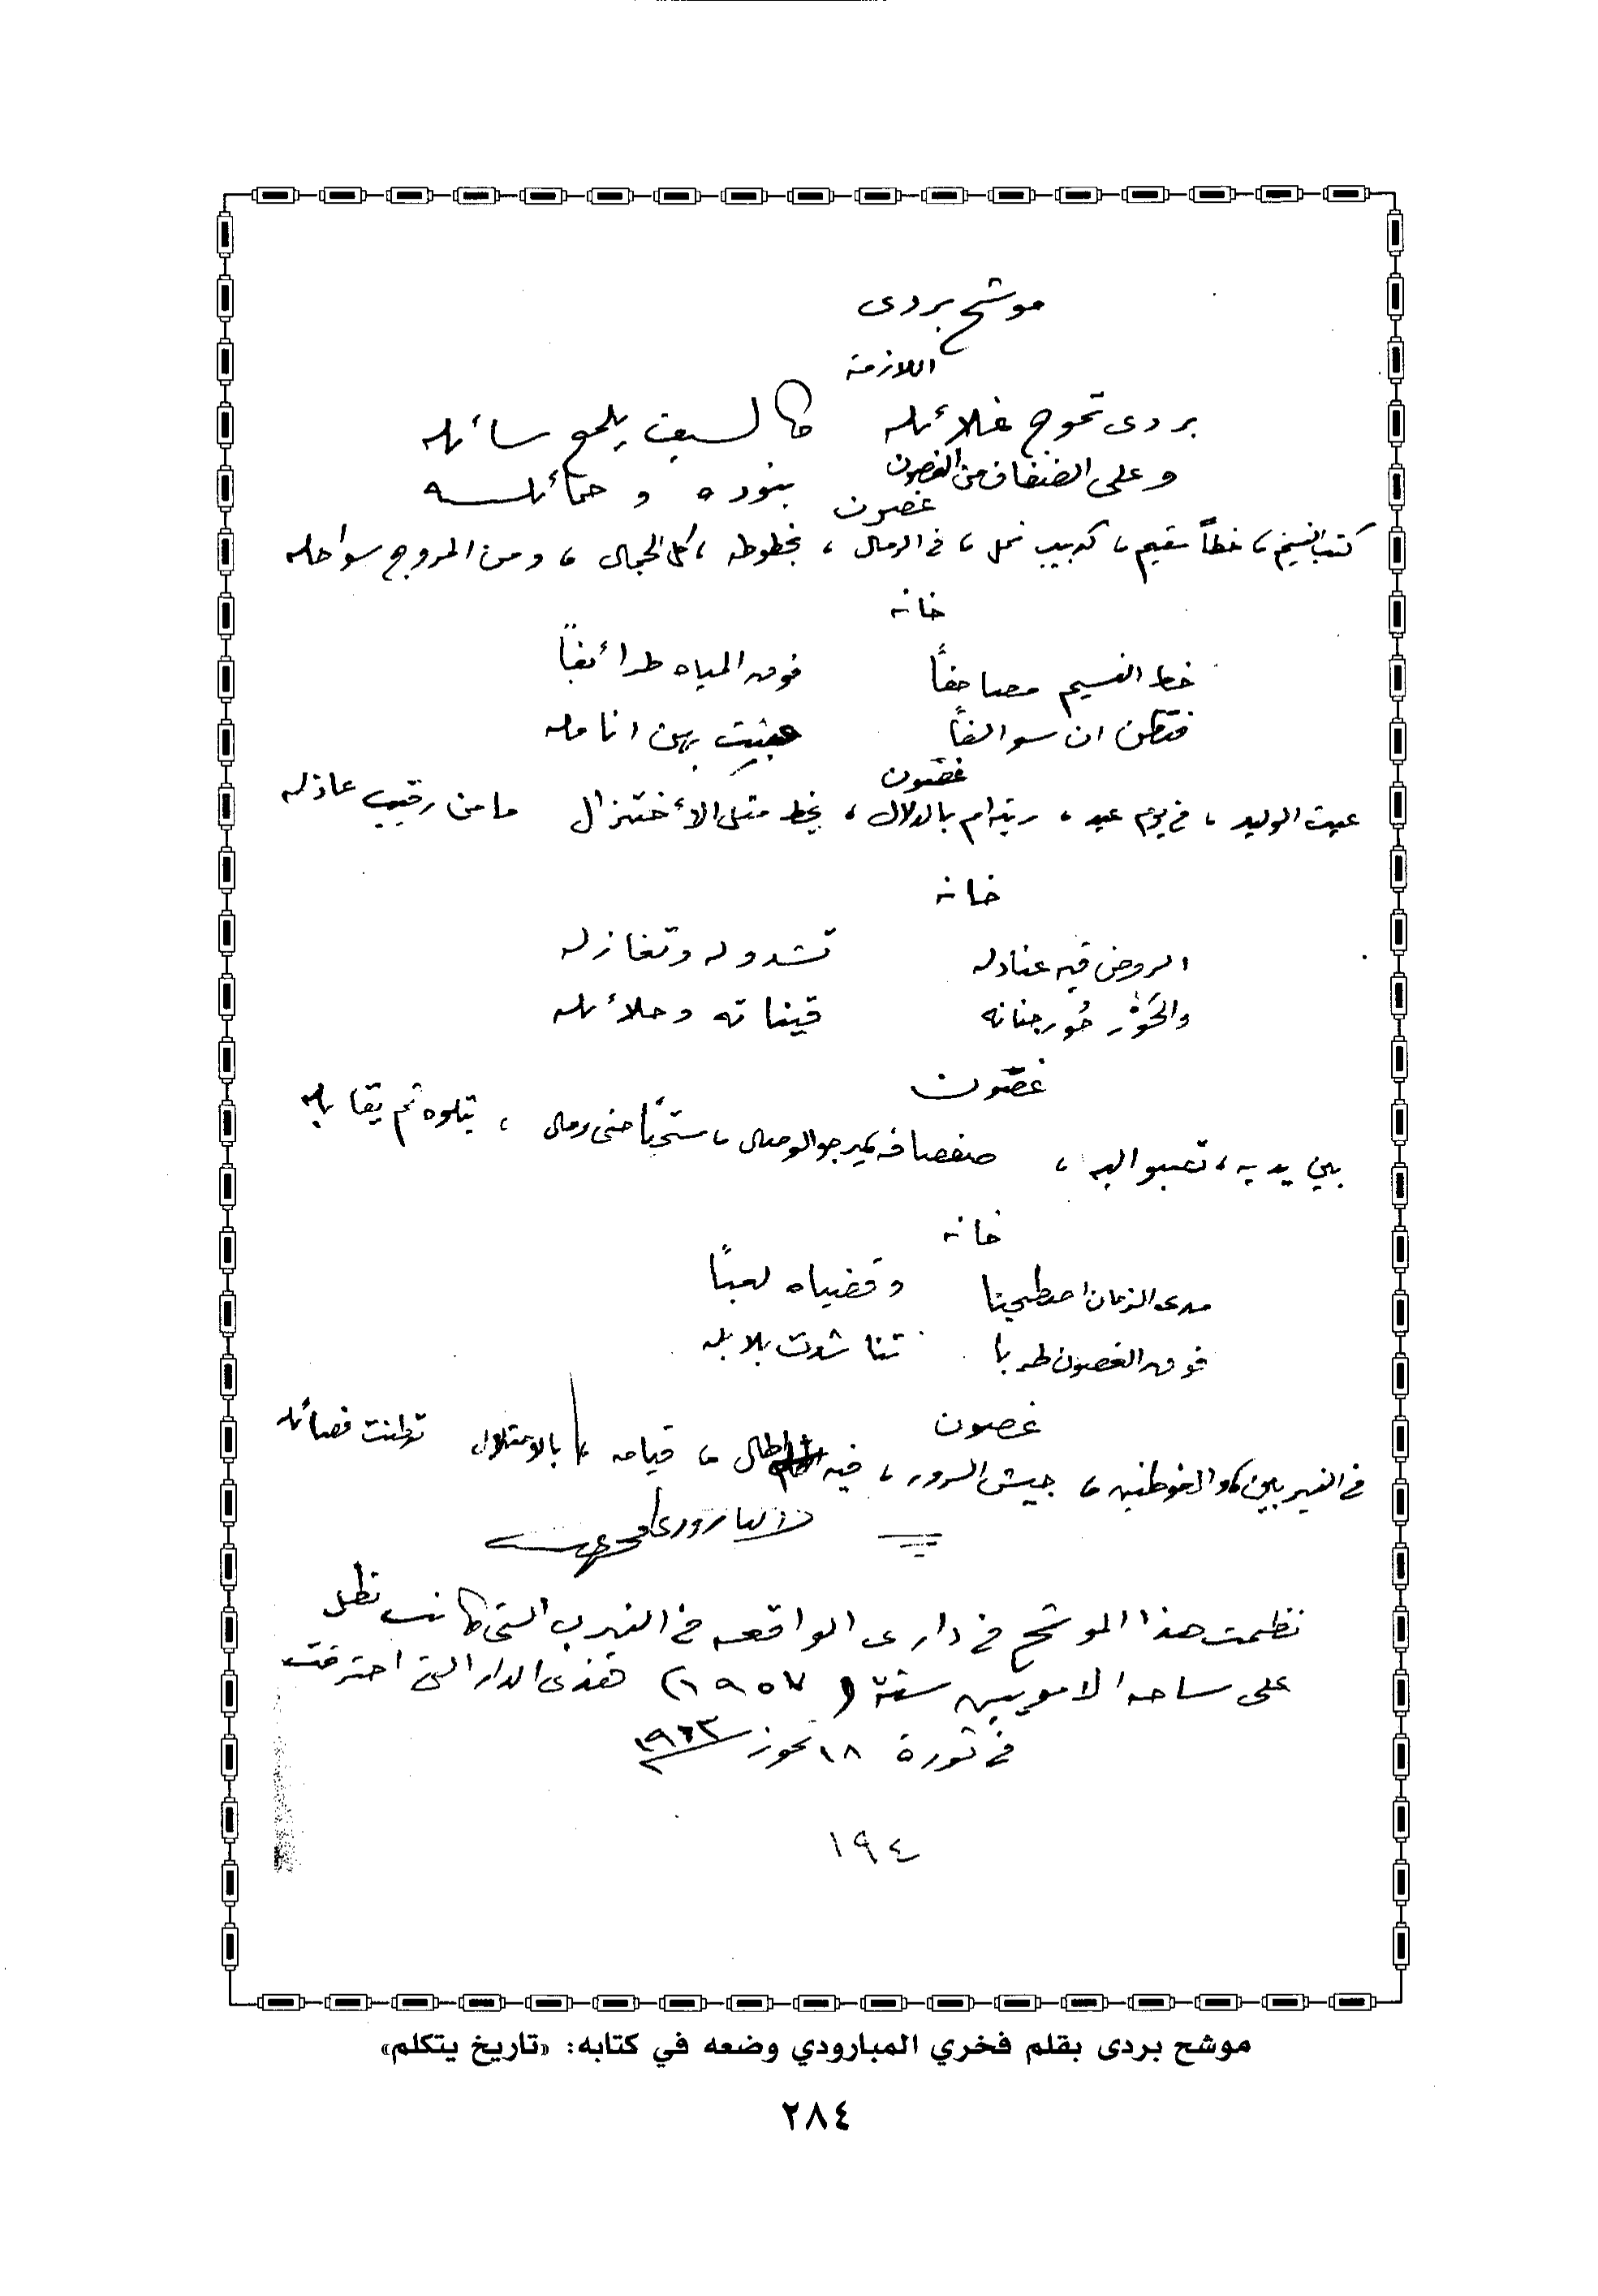 موشح بردى
اللازمة
بردى تموج غلائله كالسيف يلمع سائله
وعلى الضفاف من الغصون بنوده وحمائله
غصون
كتب النسيم، خطاً سقيم، كدبيب نمل، في الرمال، بخطوطه، كل الجمال، ومن المروج سواحله
خانه
خط النسيم مصاحفاً فوق المياه طرائفاً
فتظن ان سوالفاً عبثت بهن انامله
غصون
عبث الوليد، في يوم عيد، بالدلال، بخط مثل الأختزال ما من رقيب عاذله
خانه
الروض فيه عنادله تشدو له وتغازله
والحَوْر حُور جنانه قيناته وحلائله
غصون
بين يديه، تصبو اليه، صفصافه يرجو الوصال، ، يتلوه ثم يقابله
خانه
مدى الزمان اصطحبنا وقضيناه لعباً
فوق الغصون طربا شدت بلابله
غصون
في النيربين والغوطتين، جيش السرور، فيه اطال، قيامه، بالاحتلال فصائله
البارودي
نظمت هذا الموشح في داري الواقعه في النيرب التي كانت تطل
على ساحه الامويين سنة (١٩٥٧) هذى الدار التي احترقت
في ثورة ١٨ تموز ١٩٦٣
١٩٤
موشح بردى بقلم فخري المبارودي وضعه في كتابه: «تاريخ يتكلم»
٢٨٤